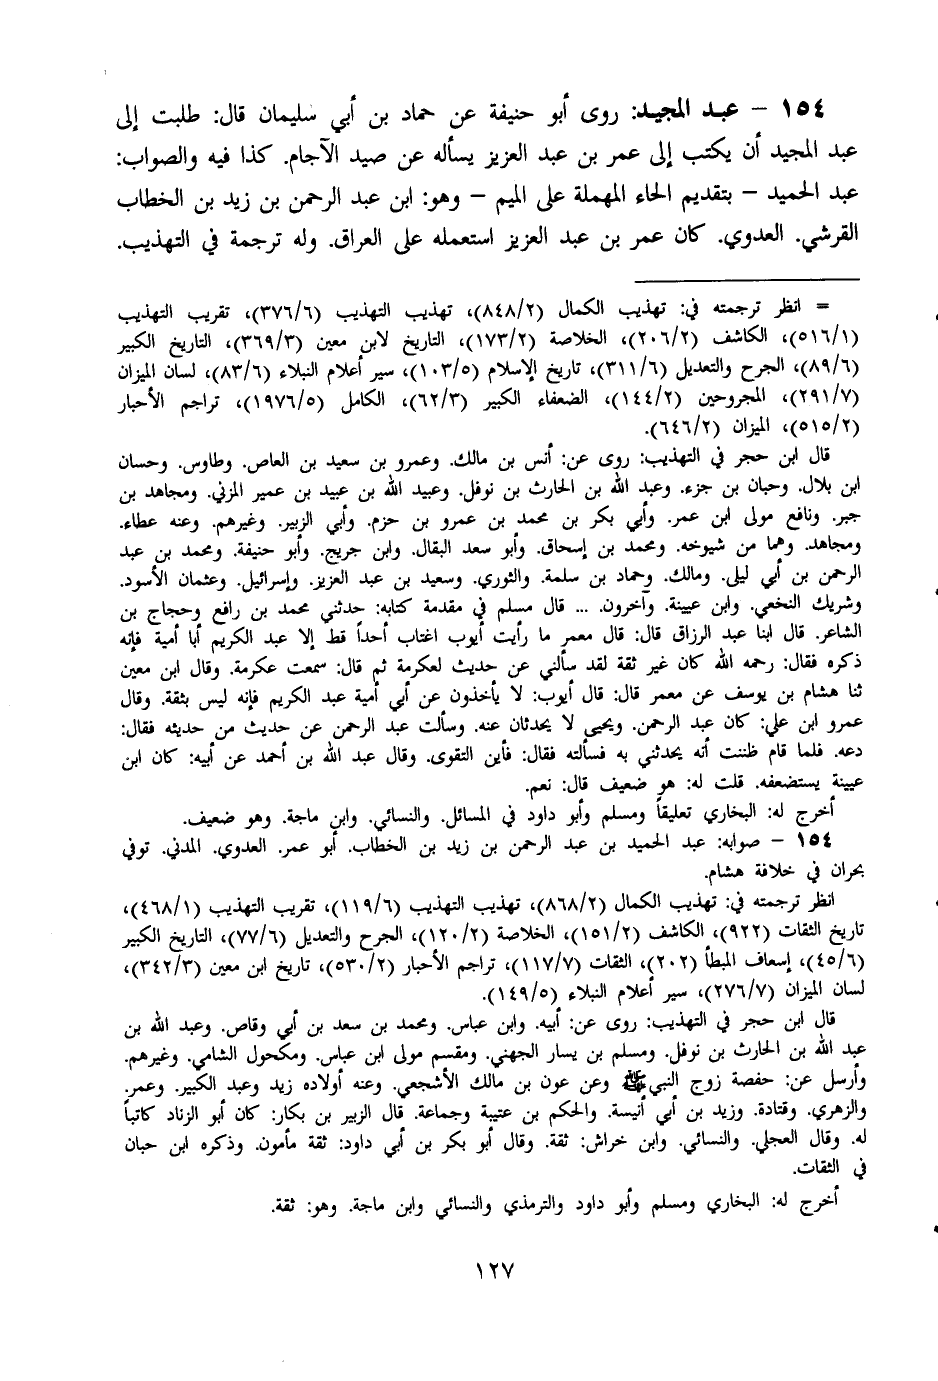 ١٥٤ – عبد المجيد: روى أبو حنيفة عن حماد بن أبي سليمان قال: طلبت إلى
عبد المجيد أن يكتب إلى عمر بن عبد العزيز يسأله عن صيد الآجام. كذا فيه والصواب:
عبد الحميد – بتقديم الحاء المهملة على الميم – وهو: ابن عبد الرحمن بن زيد بن الخطاب
القرشي. العدوي. كان عمر بن عبد العزيز استعمله على العراق. وله ترجمة في التهذيب.
= انظر ترجمته في: تهذيب الكمال (٨٤٨/٢)، تهذيب التهذيب (٣٧٦/٦)، تقريب التهذيب
(٥١٦/١)، الكاشف (٢٠٦/٢)، الخلاصة (١٧٣/٢)، التاريخ لابن معين (٣٦٩/٣)، التاريخ الكبير
(٨٩/٦)، الجرح والتعديل (٣١١/٦)، تاريخ الإسلام (١٠٣/٥)، سير أعلام النبلاء (٨٣/٦)، لسان الميزان
(٢٩١/٧)، المجروحين (١٤٤/٢)، الضعفاء الكبير (٦٢/٣)، الكامل (١٩٧٦/٥)، تراجم الأحبار
(٥١٥/٢)، الميزان (٦٤٦/٢).
قال ابن حجر في التهذيب: روى عن: أنس بن مالك. وعمرو بن سعيد بن العاص. وطاوس. وحسان
ابن بلال. وحبان بن جزء. وعبد الله بن الحارث بن نوفل. وعبيد الله بن عبيد بن عمير المزني. ومجاهد بن
جبر. ونافع مولى ابن عمر. وأبي بكر بن محمد بن عمرو بن حزم. وأبي الزبير. وغيرهم. وعنه عطاء.
ومجاهد. وهما من شيوخه. ومحمد بن إسحاق. وأبو سعد البقال. وابن جريج. وأبو حنيفة. ومحمد بن عبد
الرحمن بن أبي ليلى. ومالك. وحماد بن سلمة. والثوري. وسعيد بن عبد العزيز. وإسرائيل. وعثمان الأسود.
وشريك النخعي. وابن عيينة. وآخرون. ... قال مسلم في مقدمة كتابه: حدثني محمد بن رافع وحجاج بن
الشاعر. قال ابنا عبد الرزاق قال: قال معمر ما رأيت أيوب اغتاب أحداً قط إلا عبد الكريم أبا أمية فإنه
ذكره فقال: رحمه الله كان غير ثقة لقد سألني عن حديث لعكرمة ثم قال: سمعت عكرمة. وقال ابن معين
ثنا هشام بن يوسف عن معمر قال: قال أيوب: لا يأخذون عن أبي أمية عبد الكريم فإنه ليس بثقة. وقال
عمرو ابن علي: كان عبد الرحمن. ويحيى لا يحدثان عنه. وسألت عبد الرحمن عن حديث من حديثه فقال:
دعه. فلما قام ظننت أنه يحدثني به فسألته فقال: فأين التقوى. وقال عبد الله بن أحمد عن أبيه: كان ابن
عيينة يستضعفه. قلت له: هو ضعيف قال: نعم.
أخرج له: البخاري تعليقاً ومسلم وأبو داود في المسائل. والنسائي. وابن ماجة. وهو ضعيف.
١٥٤ – صوابه: عبد الحميد بن عبد الرحمن بن زيد بن الخطاب. أبو عمر. العدوي. المدني. توفي
بحران في خلافة هشام.
انظر ترجمته في: تهذيب الكمال (٨٦٨/٢)، تهذيب التهذيب (١١٩/٦)، تقريب التهذيب (٤٦٨/١)،
تاريخ الثقات (٩٢٢)، الكاشف (١٥١/٢)، الخلاصة (١٢٠/٢)، الجرح والتعديل (٧٧/٦)، التاريخ الكبير
(٤٥/٦)، إسعاف المبطأ (٢٠٢)، الثقات (١١٧/٧)، تراجم الأحبار (٥٣٠/٢)، تاريخ ابن معين (٣٤٢/٣)،
لسان الميزان (٢٧٦/٧)، سير أعلام النبلاء (١٤٩/٥).
قال ابن حجر في التهذيب: روى عن: أبيه. وابن عباس. ومحمد بن سعد بن أبي وقاص. وعبد الله بن
عبد الله بن الحارث بن نوفل. ومسلم بن يسار الجهني. ومقسم مولى ابن عباس. ومكحول الشامي. وغيرهم.
وأرسل عن: حفصة زوج النبي ﷺ وعن عون بن مالك الأشجعي. وعنه أولاده زيد وعبد الكبير. وعمر.
والزهري. وقتادة. وزيد بن أبي أنيسة. والحكم بن عتيبة وجماعة. قال الزبير بن بكار: كان أبو الزناد كاتباً
له. وقال العجلي. والنسائي. وابن خراش: ثقة. وقال أبو بكر بن أبي داود: ثقة مأمون. وذكره ابن حبان
في الثقات.
أخرج له: البخاري ومسلم وأبو داود والترمذي والنسائي وابن ماجة. وهو: ثقة.
١٢٧